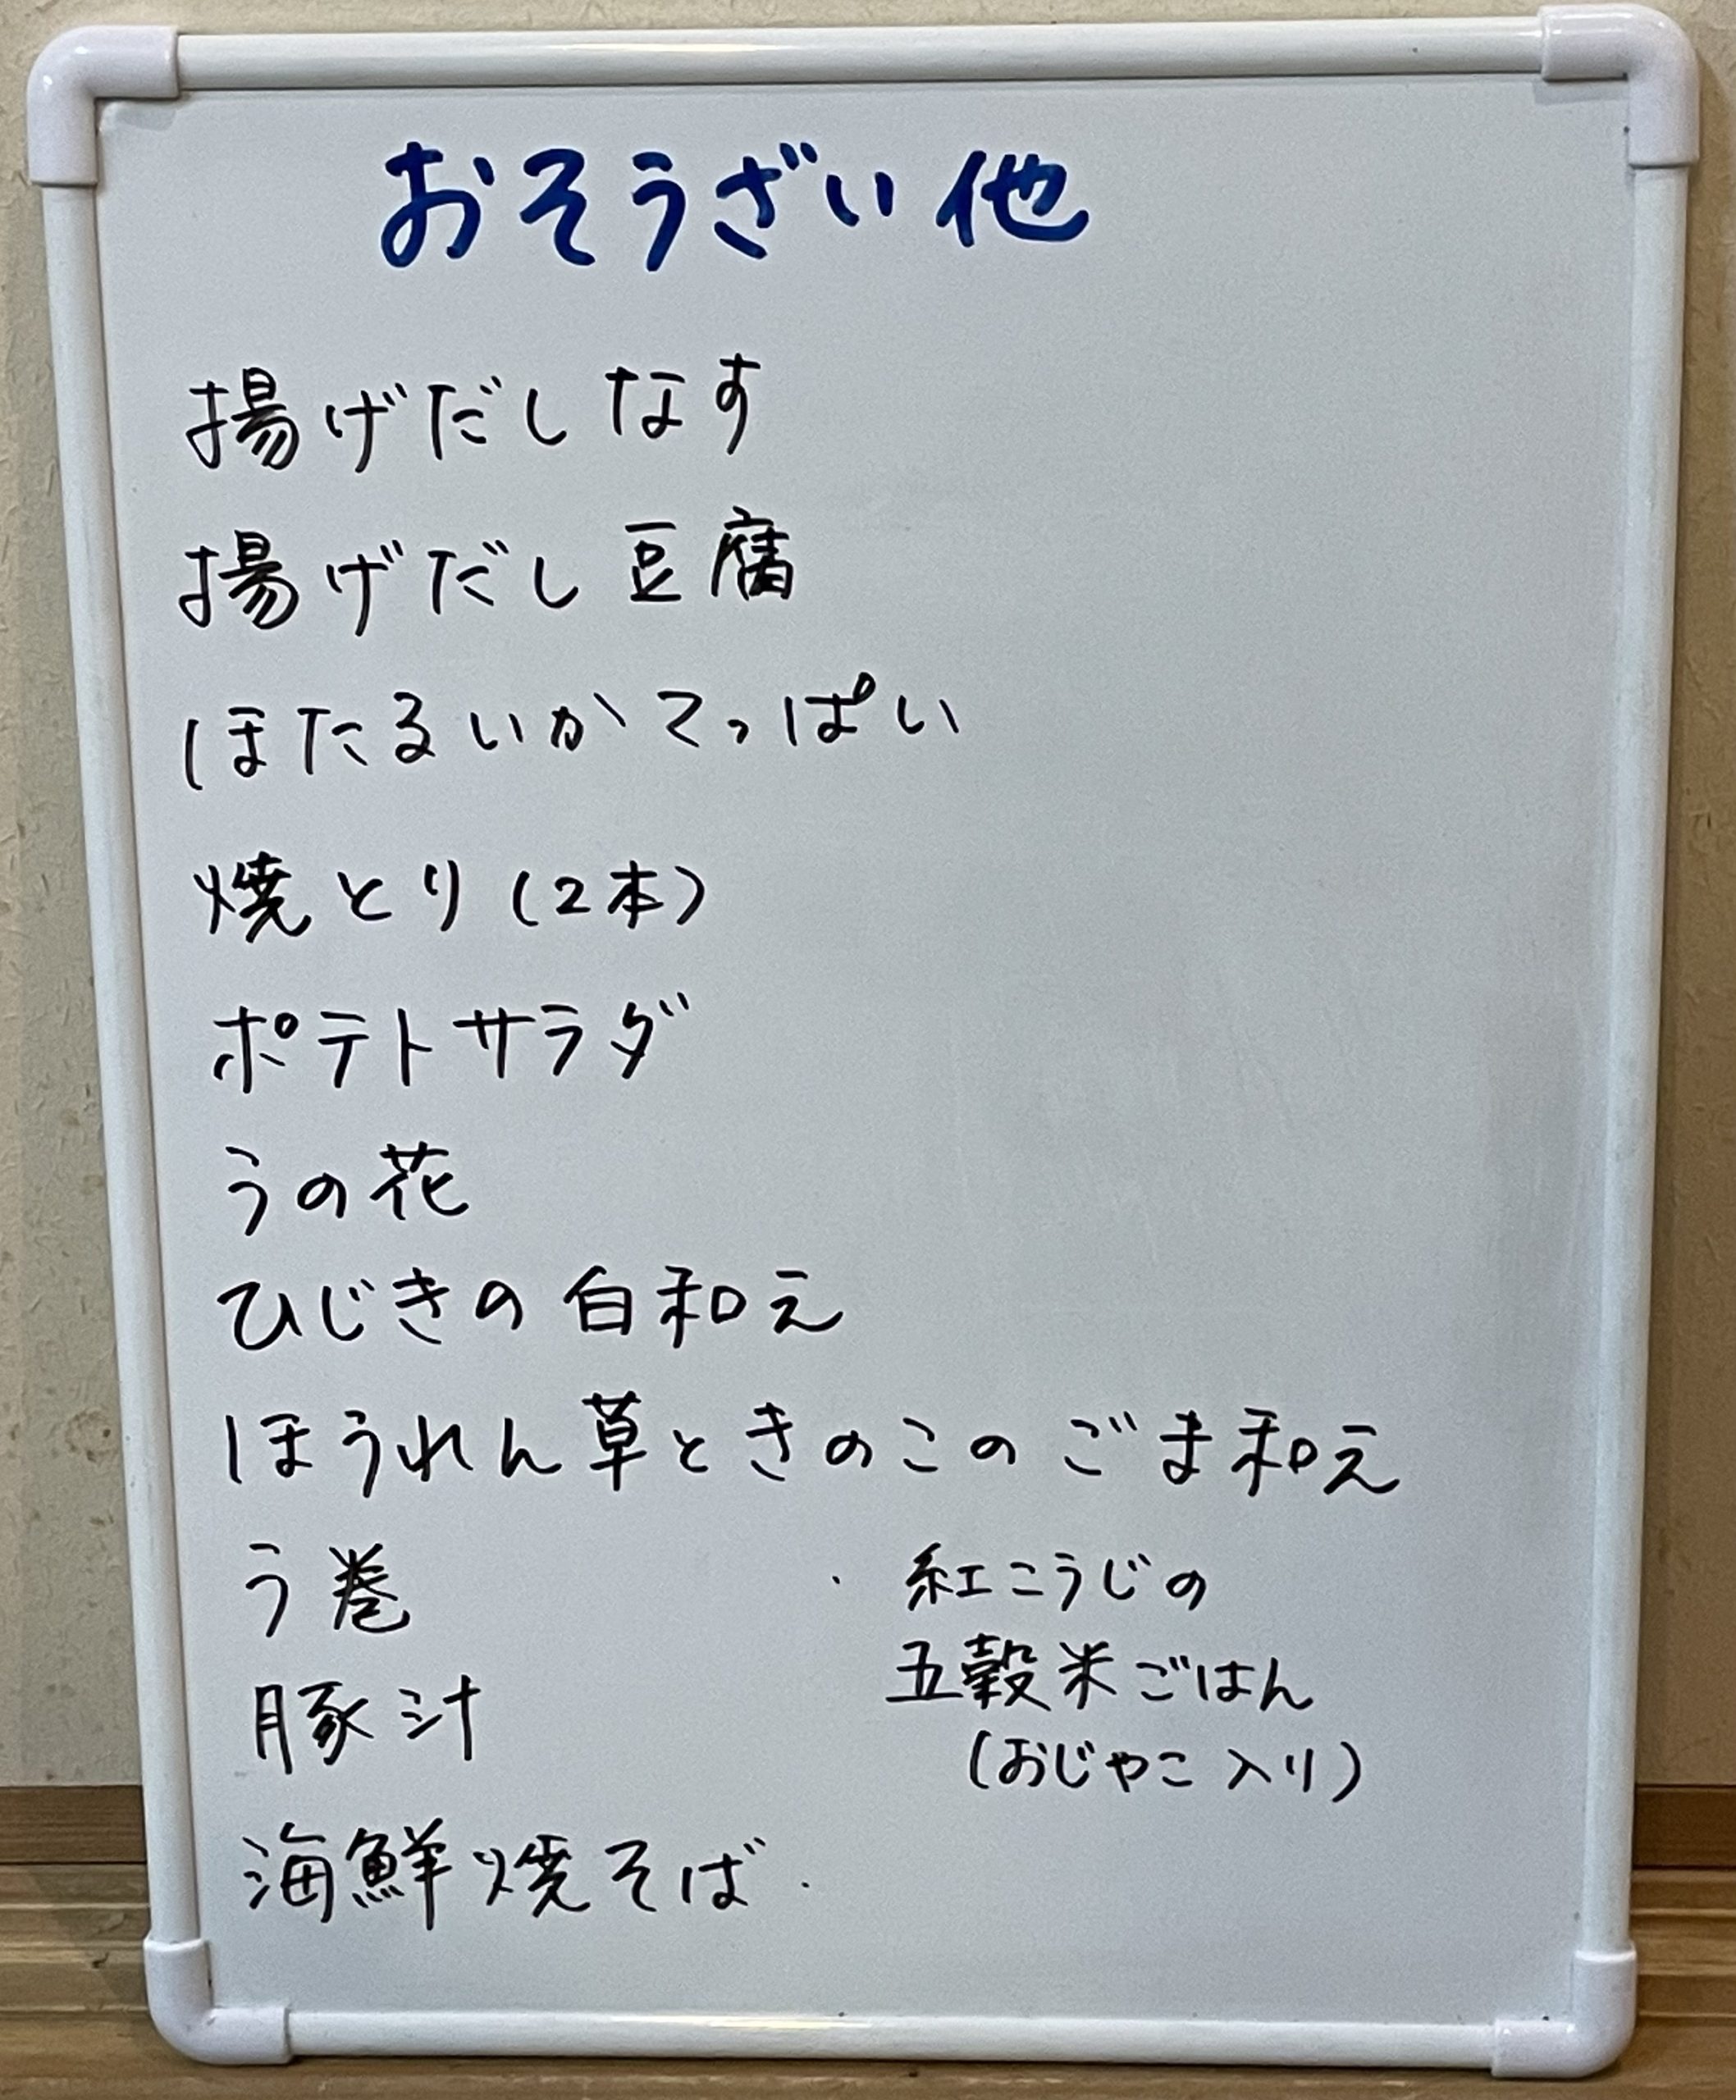 おそうざい他
揚げだしなす
揚げだし豆腐
ほたるいかてっぱい
焼とり(2本)
ポテトサラダ
うの花
ひじきの白和え
ほうれん草ときのこのごま和え
う巻
豚汁
海鮮焼そば
紅こうじの
五穀米ごはん
(おじゃこ入り)